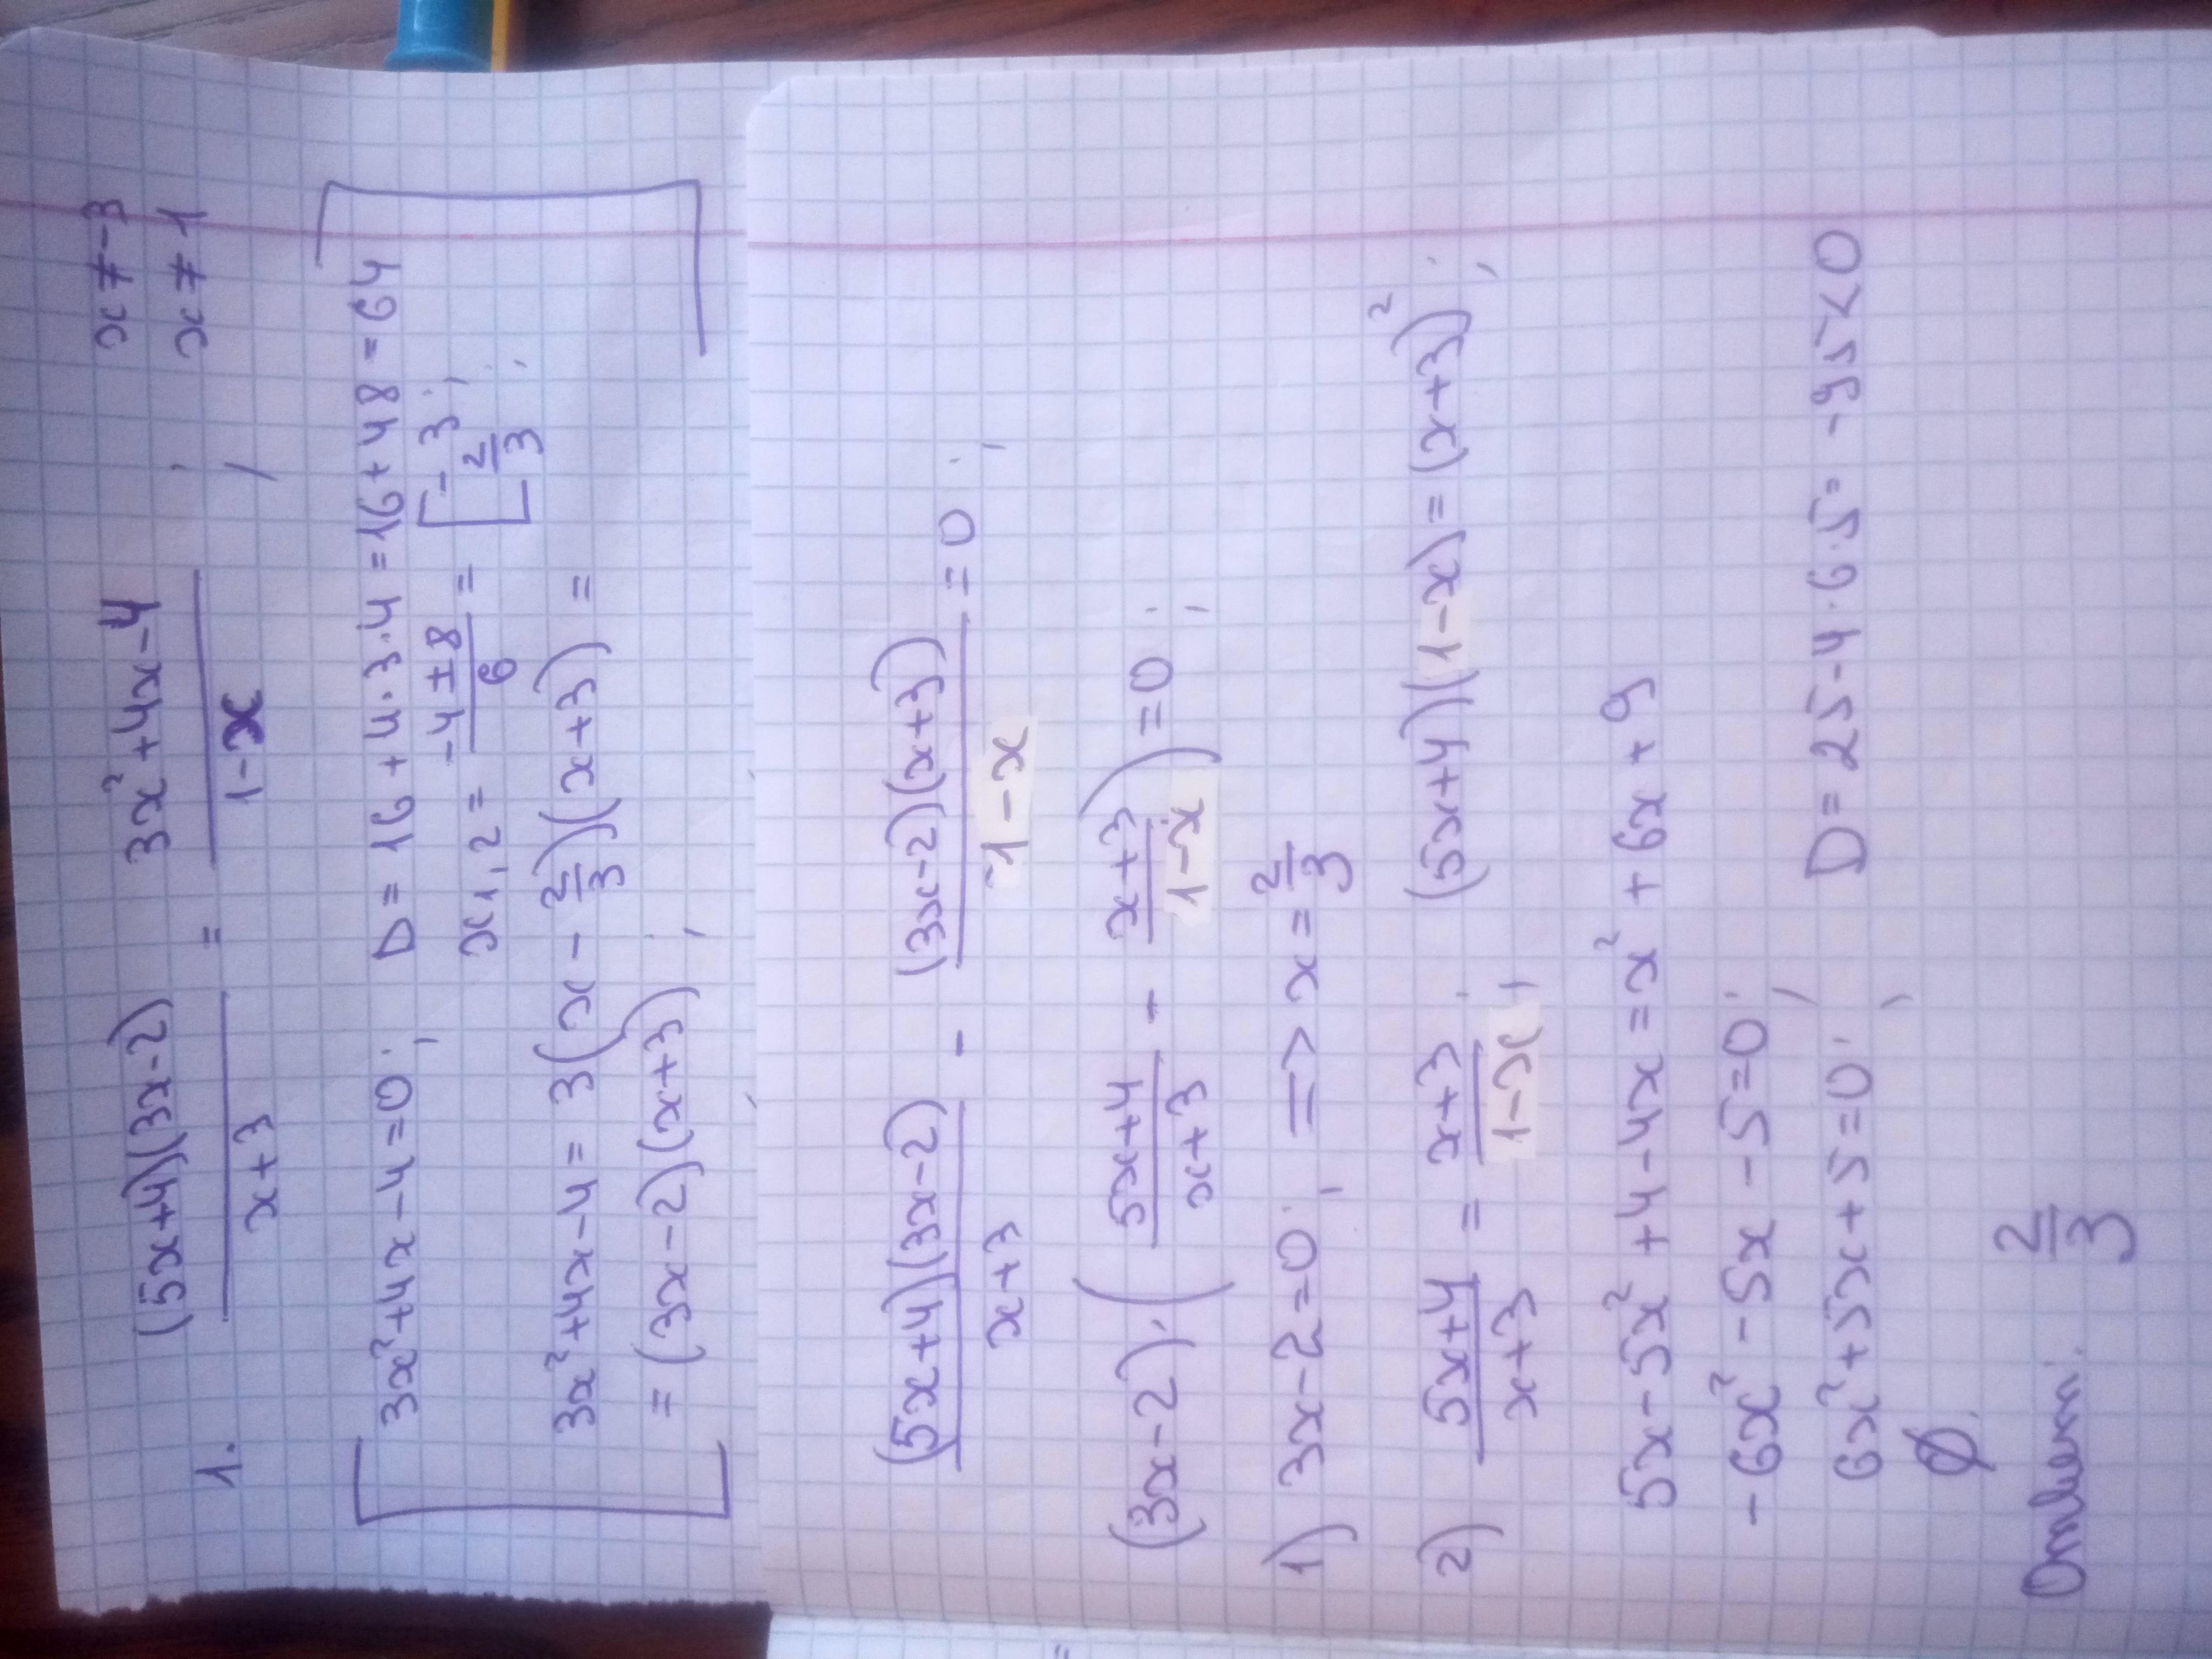 1. (5x+4)(3x-2)/(x+3) = (3x²+4x-4)/(1-x) ; x≠-3
x≠1
3x²+4x-4=0; D=16+4·3·4=16+48=64
x1,2 = (-4±8)/6 = [-3; 2/3;
3x²+4x-4=3(x-2/3)(x+3)=
=(3x-2)(x+3);
(5x+4)(3x-2)/(x+3) - (3x-2)(x+3)/(1-x) =0;
(3x-2)·((5x+4)/(x+3) - (x+3)/(1-x))=0;
1) 3x-2=0; => x=2/3
2) (5x+4)/(x+3) = (x+3)/(1-x); (5x+4)(1-x)=(x+3)²;
5x-5x²+4-4x=x²+6x+9
-6x²-5x-5=0;
6x²+5x+5=0; D=25-4·6·5=-95<0
Ø.
Ответ: 2/3